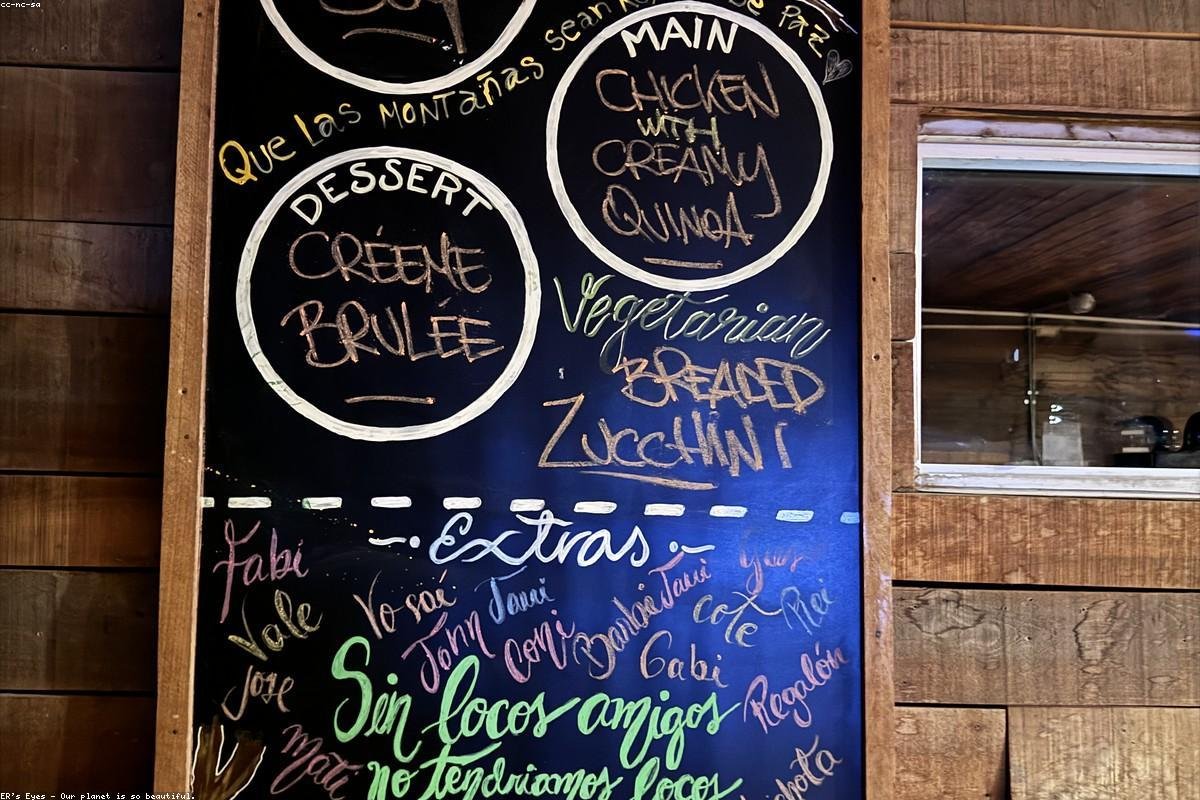 cc-nc-sa
Que las MONTañas sean
Paz
MAIN
CHICKEN
WITH
CREAMY
QUINOA
DESSERT
CRÉEME
BRULÉE
Vegetarian
BREADED
ZUCCHINI
Extras
Fabi
Vale
Yo soi
Javi
John
Coni
Barbie
Javi
Cote
Gabi
Jose
Regalón
Sin locos amigos
Mati
no tendriamos locos
ER's Eyes - Our planet is so beautiful.